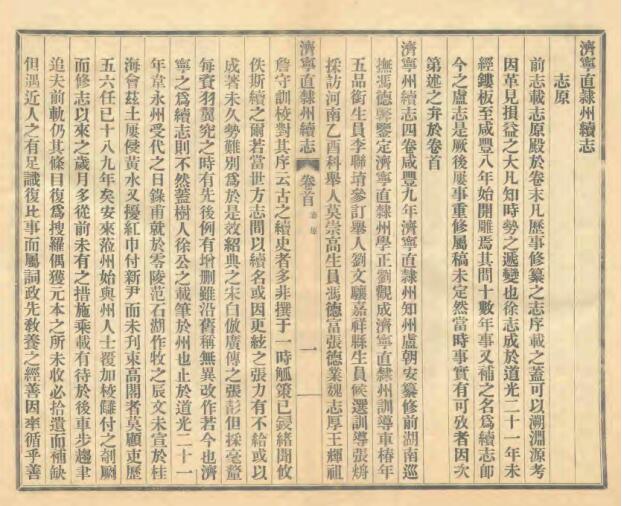 濟寧直隸州續志
志原
前志載志原殿於卷末凡歷事修纂之志序載之蓋可以溯淵源考
因革見損益之大凡知時勢之遞變也徐志成於道光二十一年未
經鏤板至咸豐八年始開雕焉其間十數年事又補之名爲續志卽
今之盧志是厥後屢事重修屬稿未定然當時事實有可攷者因次
第述之弁於卷首
濟寧州續志四卷咸豐九年濟寧直隸州知州盧朝安纂修前湖南巡
撫馮德馨鑒定濟寧直隸州學正劉觀成濟寧直隸州訓導車椿年
五品銜生員李聯堉參訂舉人劉文驤嘉祥縣生員候選訓導張
採訪河南乙酉科舉人莫崇高生員馮德富張德業魏志厚王輝祖
濟寧直隸州續志
卷首
志原
一
詹守訓校對其序云古之續史者多非撰于一時觚策已裂緒聞攸
佚斯續之爾若當世方志間以續名或因更絃之張力有不給或以
成著未久勢難別爲於是效紹典之宋白倣廣傳之張彭但採毫釐
每資羽翼究之時有先後例有增刪雖沿舊稱無異改作若今也濟
寧之爲續志則不然蓋樹人徐公之載筆於州也止於道光二十一
年韋永州受代之日錄甫就於零陵范石湖作牧之辰文未宣於桂
海會茲土屢侵黃水又擾紅巾付新尹而未刋束高閣者莫顧吏歷
五六任已十八九年矣安來蒞州始與州人士覆加校讎付之剞劂
而修志以來之歲月多從前未有之措施乘載有待於後車步趨聿
追夫前軌仍其條目復爲搜羅偶獲元本之所未收必拾遺而補缺
但遇近人之有足識復比事而屬詞政先敎養之經善因率循乎善